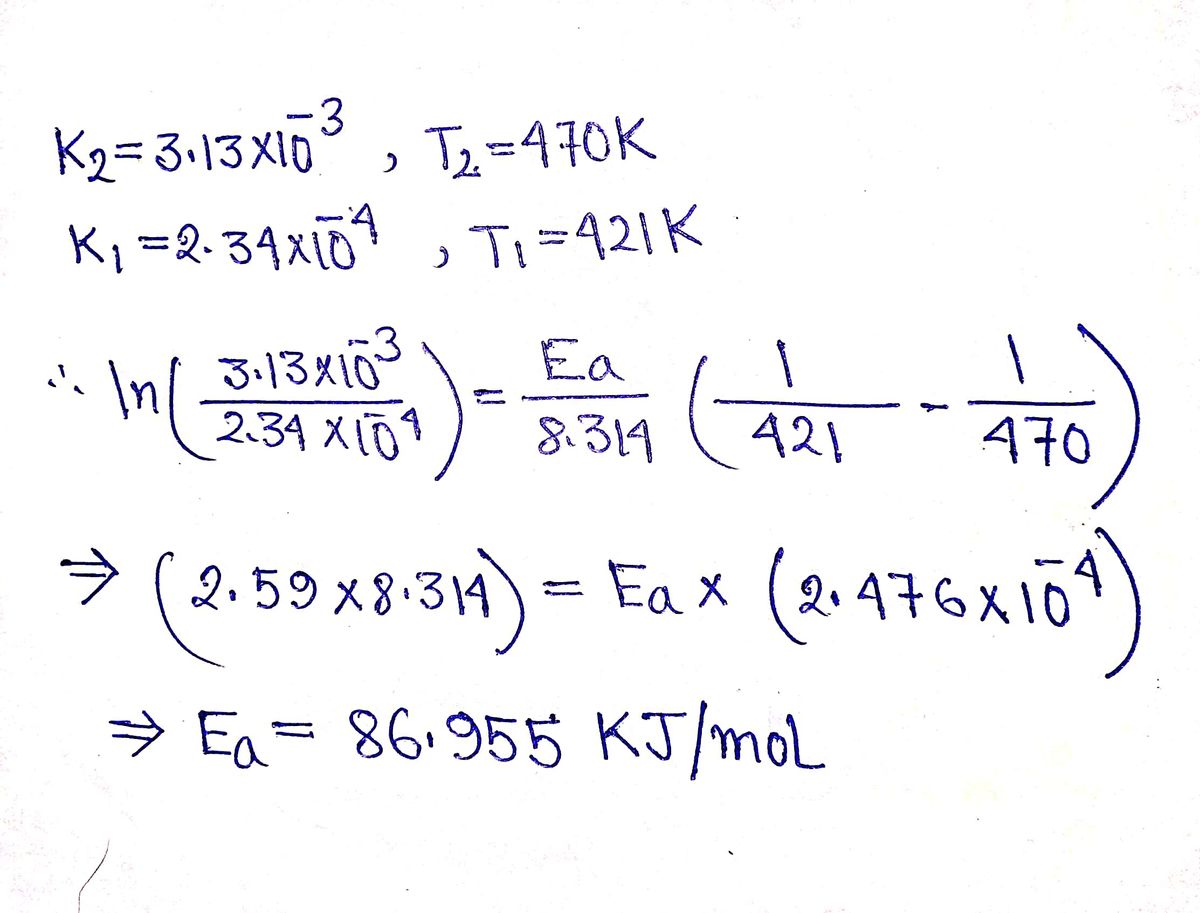 K₂ = 3.13 × 10⁻³ , T₂ = 470K
K₁ = 2.34 × 10⁻⁴ , T₁ = 421K
∴ ln(3.13 × 10⁻³ / 2.34 × 10⁻⁴) = Ea / 8.314 (1 / 421 - 1 / 470)
⇒ (2.59 × 8.314) = Ea × (2.476 × 10⁻⁴)
⇒ Ea = 86.955 KJ/mol